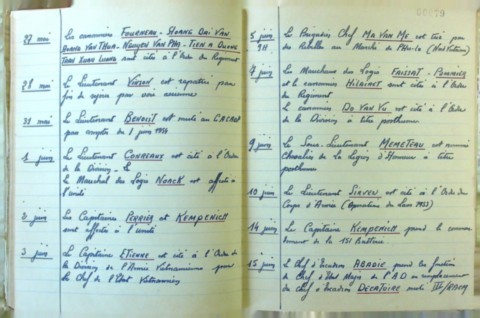 22 mai Les canonniers FOURNEAU - HOANG DAI VAN
HOANG VAN THUA - NGUYEN VAN PHA - TIEN A DUONG
TRAN XUAN LUONG sont cités à l'Ordre du Régiment
28 mai Le Lieutenant VINSON est rapatrié pour
fin de séjour par voie aérienne
31 mai Le Lieutenant BENOIT est muté au
pour compter du 1 juin 1954
1 juin Le Lieutenant est cité à l'Ordre
de la Division
Le Maréchal des Logis NOACK est affecté à
l'unité
2 juin Les Capitaines PERRIER et KEMPENICH
sont affectés à l'unité
3 juin Le Capitaine ETIENNE est cité à l'Ordre de
la Division de l'Armée Vietnamienne par
le Chef de l'Etat Vietnamien
5 juin Le Brigadier Chef MA VAN ME est tué par
9H des Rebelles au Marché de (Nord Vietnam)
7 juin Les Maréchaux des Logis FAISSAT - POMMIER
et le canonnier HILAINET sont cités à l'Ordre
du Régiment
Le canonnier DO VAN VU est cité à l'Ordre
de la Division à titre posthume
9 juin Le Sous-Lieutenant MEMETEAU est nommé
Chevalier de la Légion d'Honneur à titre
posthume
10 juin Le Lieutenant est cité à l'Ordre du
Corps d'Armée (Opérations du Laos 1953)
14 juin Le Capitaine KEMPENICH prend le comman
dement de la Batterie
15 juin Le Chef d'Escadron ABADIE prend les fonctions
de Chef d'Etat Major de l'A D en remplacement
du Chef d'Escadron DECATOIRE muté